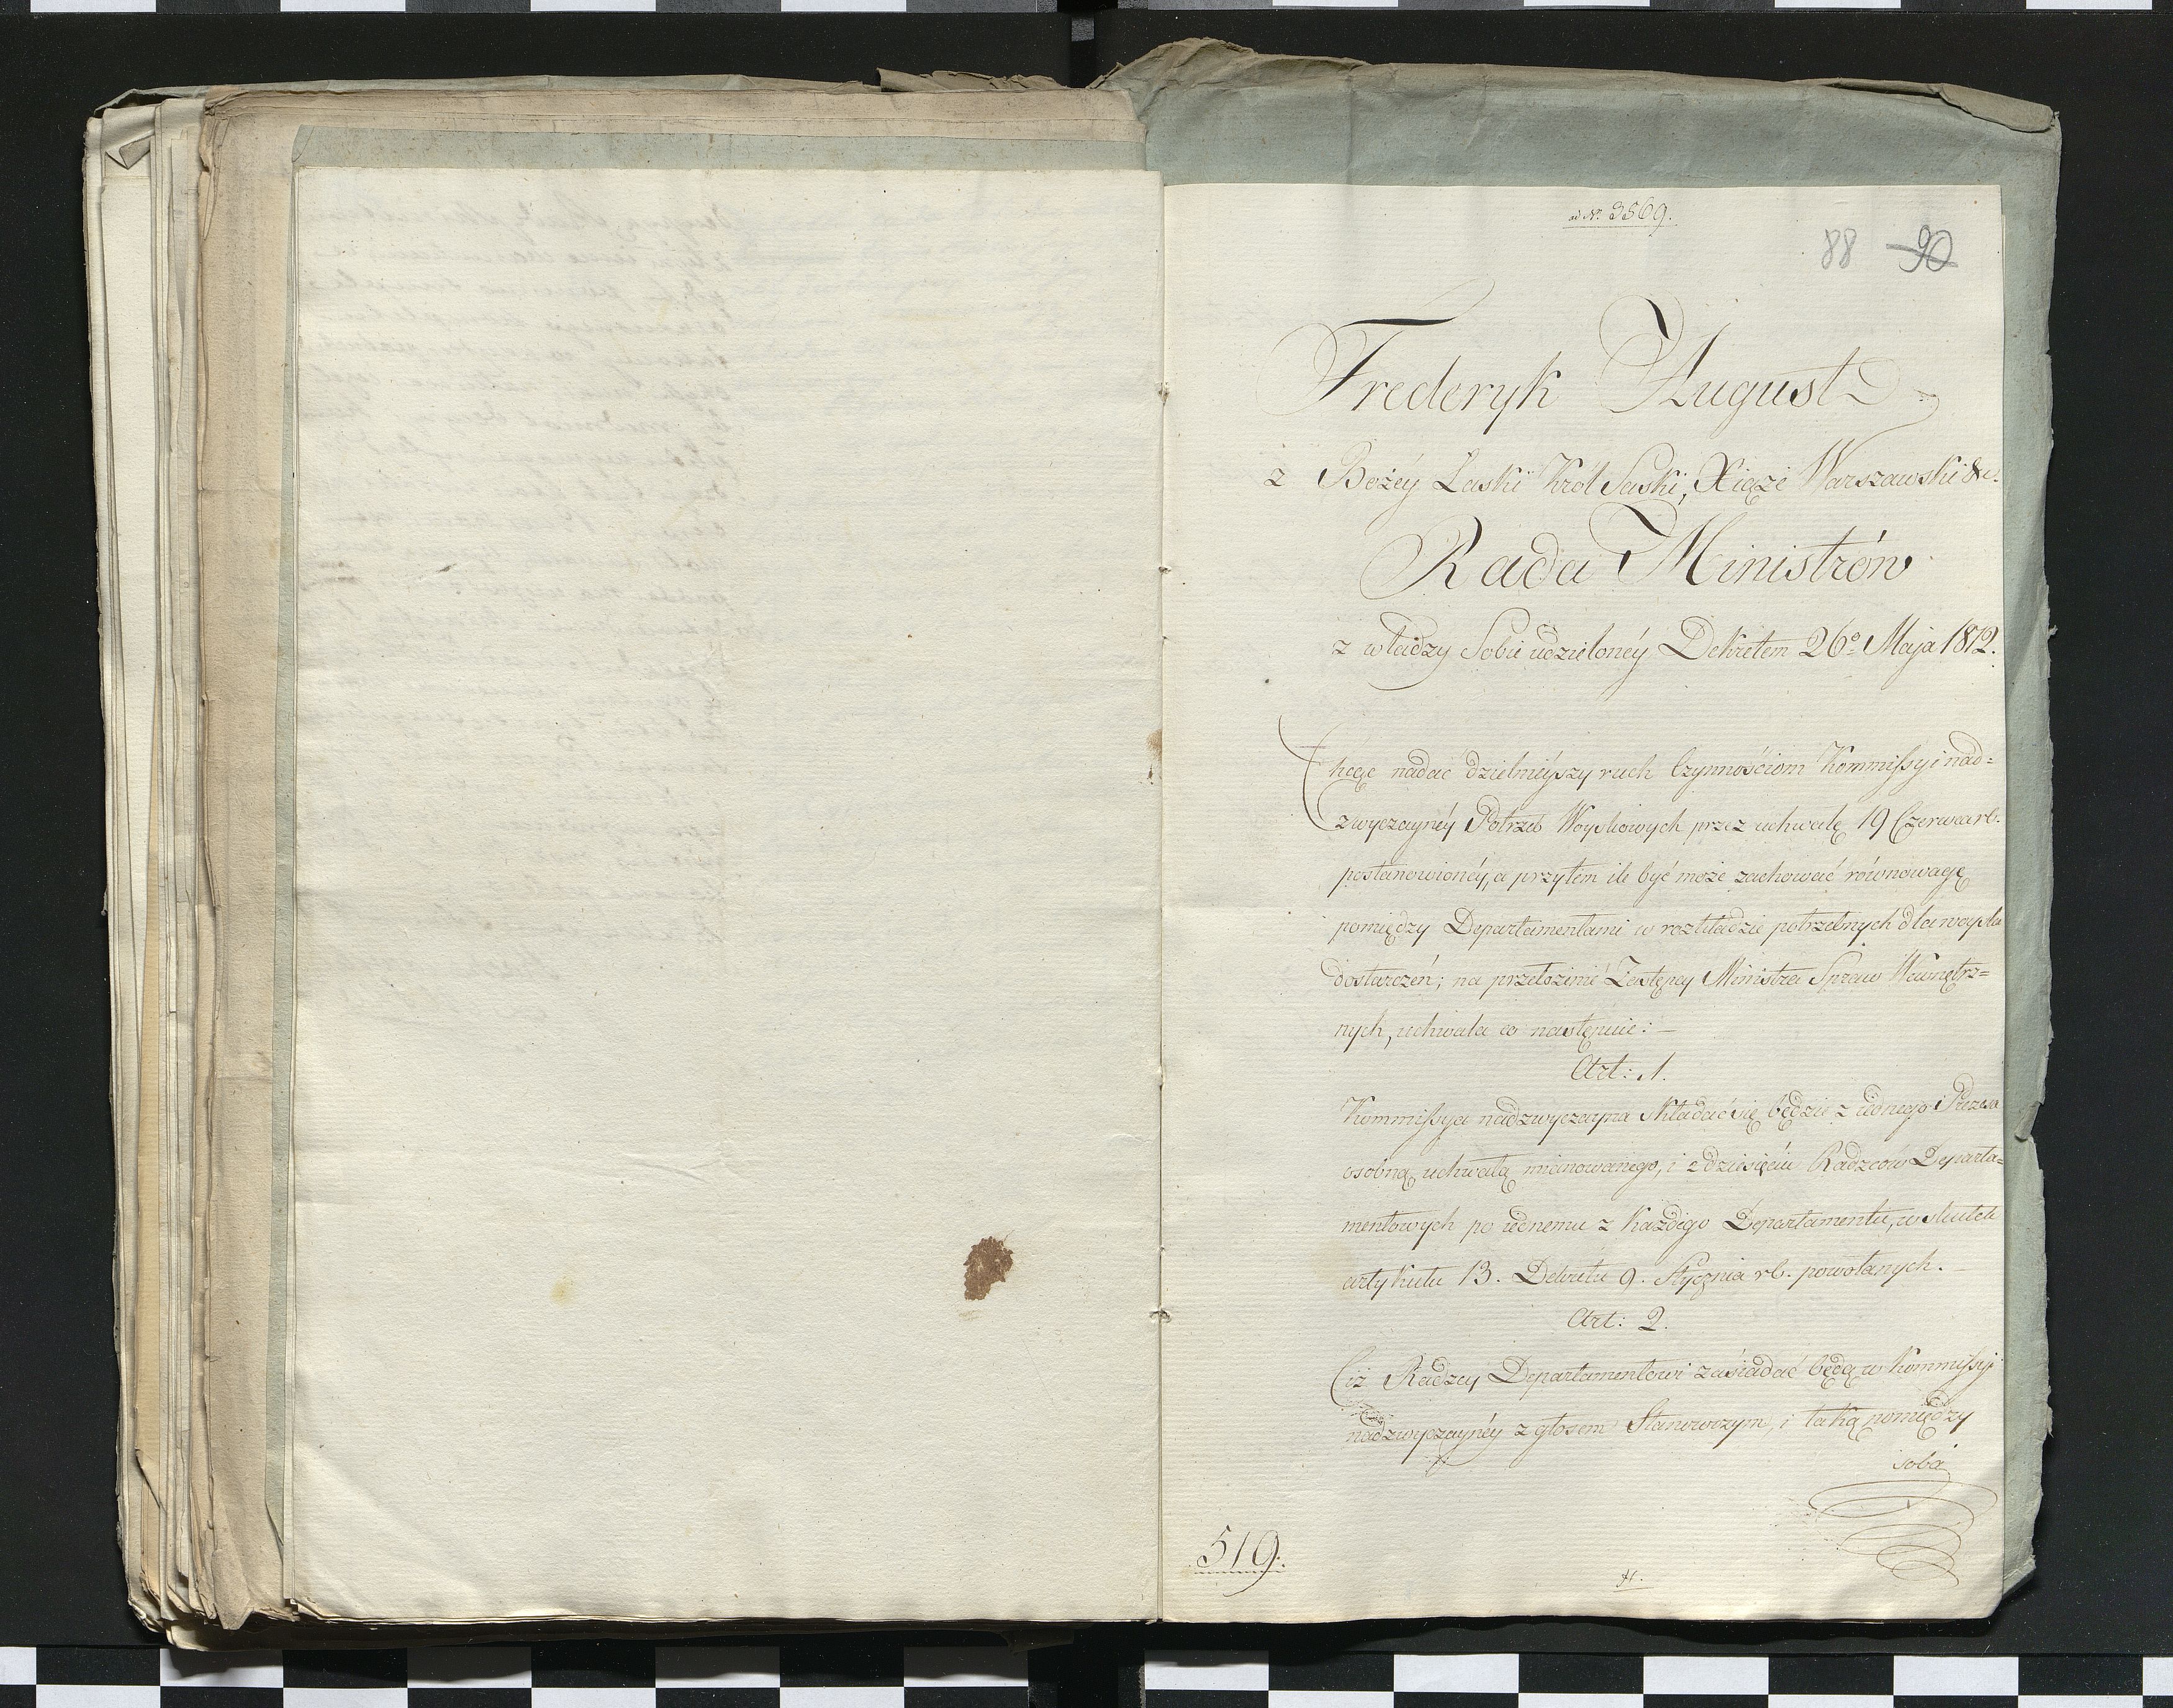 ad No. 3569.
88 90
Frederyk August
z Bożéy Łaski Król Saski, Xiążę Warszawski &c.
Rada Ministrów
z władzy Sobie udzielonéy Dekretem 26o Maja 1812.
Chcąc nadać dzielnieyszy ruch Czynnościom Kommissyi nad=
zwyczaynéy Potrzeb Woyskowych przez uchwałę 19 Czerwca rb.
postanowionéy, a przytém ile być może zachować równowagę
pomiędzy Departamentami w rozkładzie potrzebnych dla woyska
dostarczeń; na przełożenie Zastępcy Ministra Spraw Wewnętrz=
nych, uchwala co następuie: —
Art: 1.
Kommissya nadzwyczayna składać się będzie z iednego Prezesa
osobną uchwałą mianowanego, i z dziesięciu Radzców Departa=
mentowych po iednemu z każdego Departamentu, w skutek
artykułu 13. Dekretu 9. Stycznia rb. powołanych. —
Art: 2.
Ciż Radzcy Departamentowi zasiadać będą w Kommissyi
nadzwyczaynéy z głosem Stanowczym, i taką pomiędzy
sobą
519.